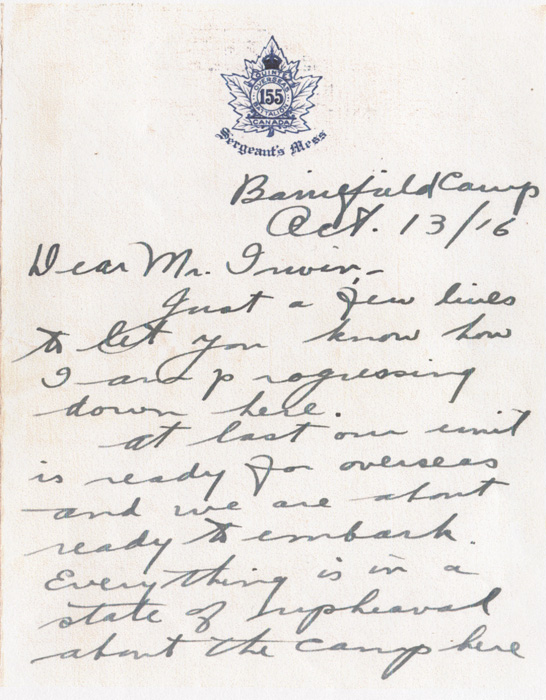 QUINTE
OVERSEAS
155
BATTALION
CANADA
Sergeant's Mess
Barriefield Camp
Oct. 13/16
Dear Mr. Irwin,-
Just a few lines
to let you know how
I am progressing
down here.
at last our unit
is ready for overseas
and we are about
ready to embark.
Everything is in a
state of upheaval
about the camp here